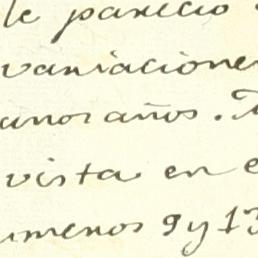 le parecio
variacione
unos años.
vista en e
umenos 9 y 13